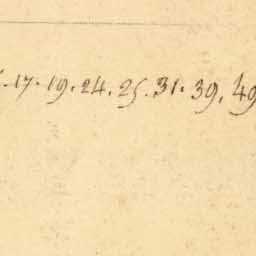 . 17. 19. 24. 25. 31. 39. 49